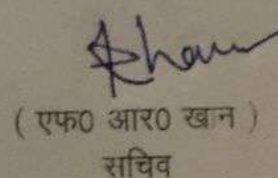 Khan
( एफ0 आर0 खान )
सचिव